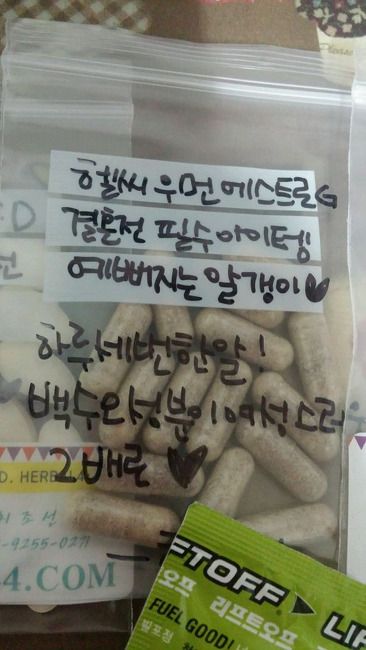 Please
헬씨 우먼 에스트로G
결혼전 필수아이템!
예뻐지는 알갱이♥
하루세번한알!
백수오성분이여성스러움
2배로 ♥
D. HERBAL
이 조 선
-9255-0271
4.COM
FTOFF LIF
오프 리프트오프
FUEL GOOD!
발포정